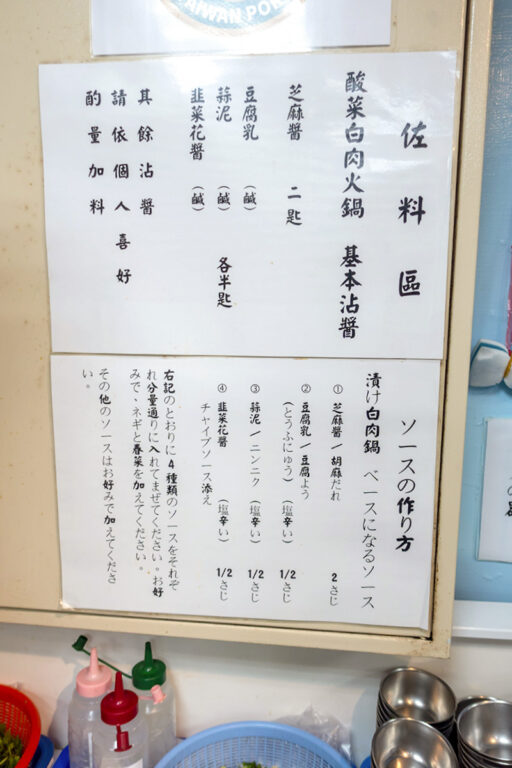 TAIWAN POR
佐料區
酸菜白肉火鍋 基本沾醬
芝麻醬 二匙
豆腐乳 (鹹)
蒜泥 (鹹) 各半匙
韭菜花醬 (鹹)
其餘沾醬
請依個人喜好
酌量加料
ソースの作り方
漬け白肉鍋 ベースになるソース
① 芝麻醬/胡麻だれ 2さじ
② 豆腐乳/豆腐よう
(とうふにゅう) (塩辛い) 1/2さじ
③ 蒜泥/ニンニク (塩辛い) 1/2さじ
④ 韭菜花醬 (塩辛い) 1/2さじ
チャイブソース添え
右記のとおりに4種類のソースをそれぞ
れ分量通りに入れてまぜてください。お好
みで、ネギと春菜を加えてください。
その他のソースはお好みで加えてくださ
い。